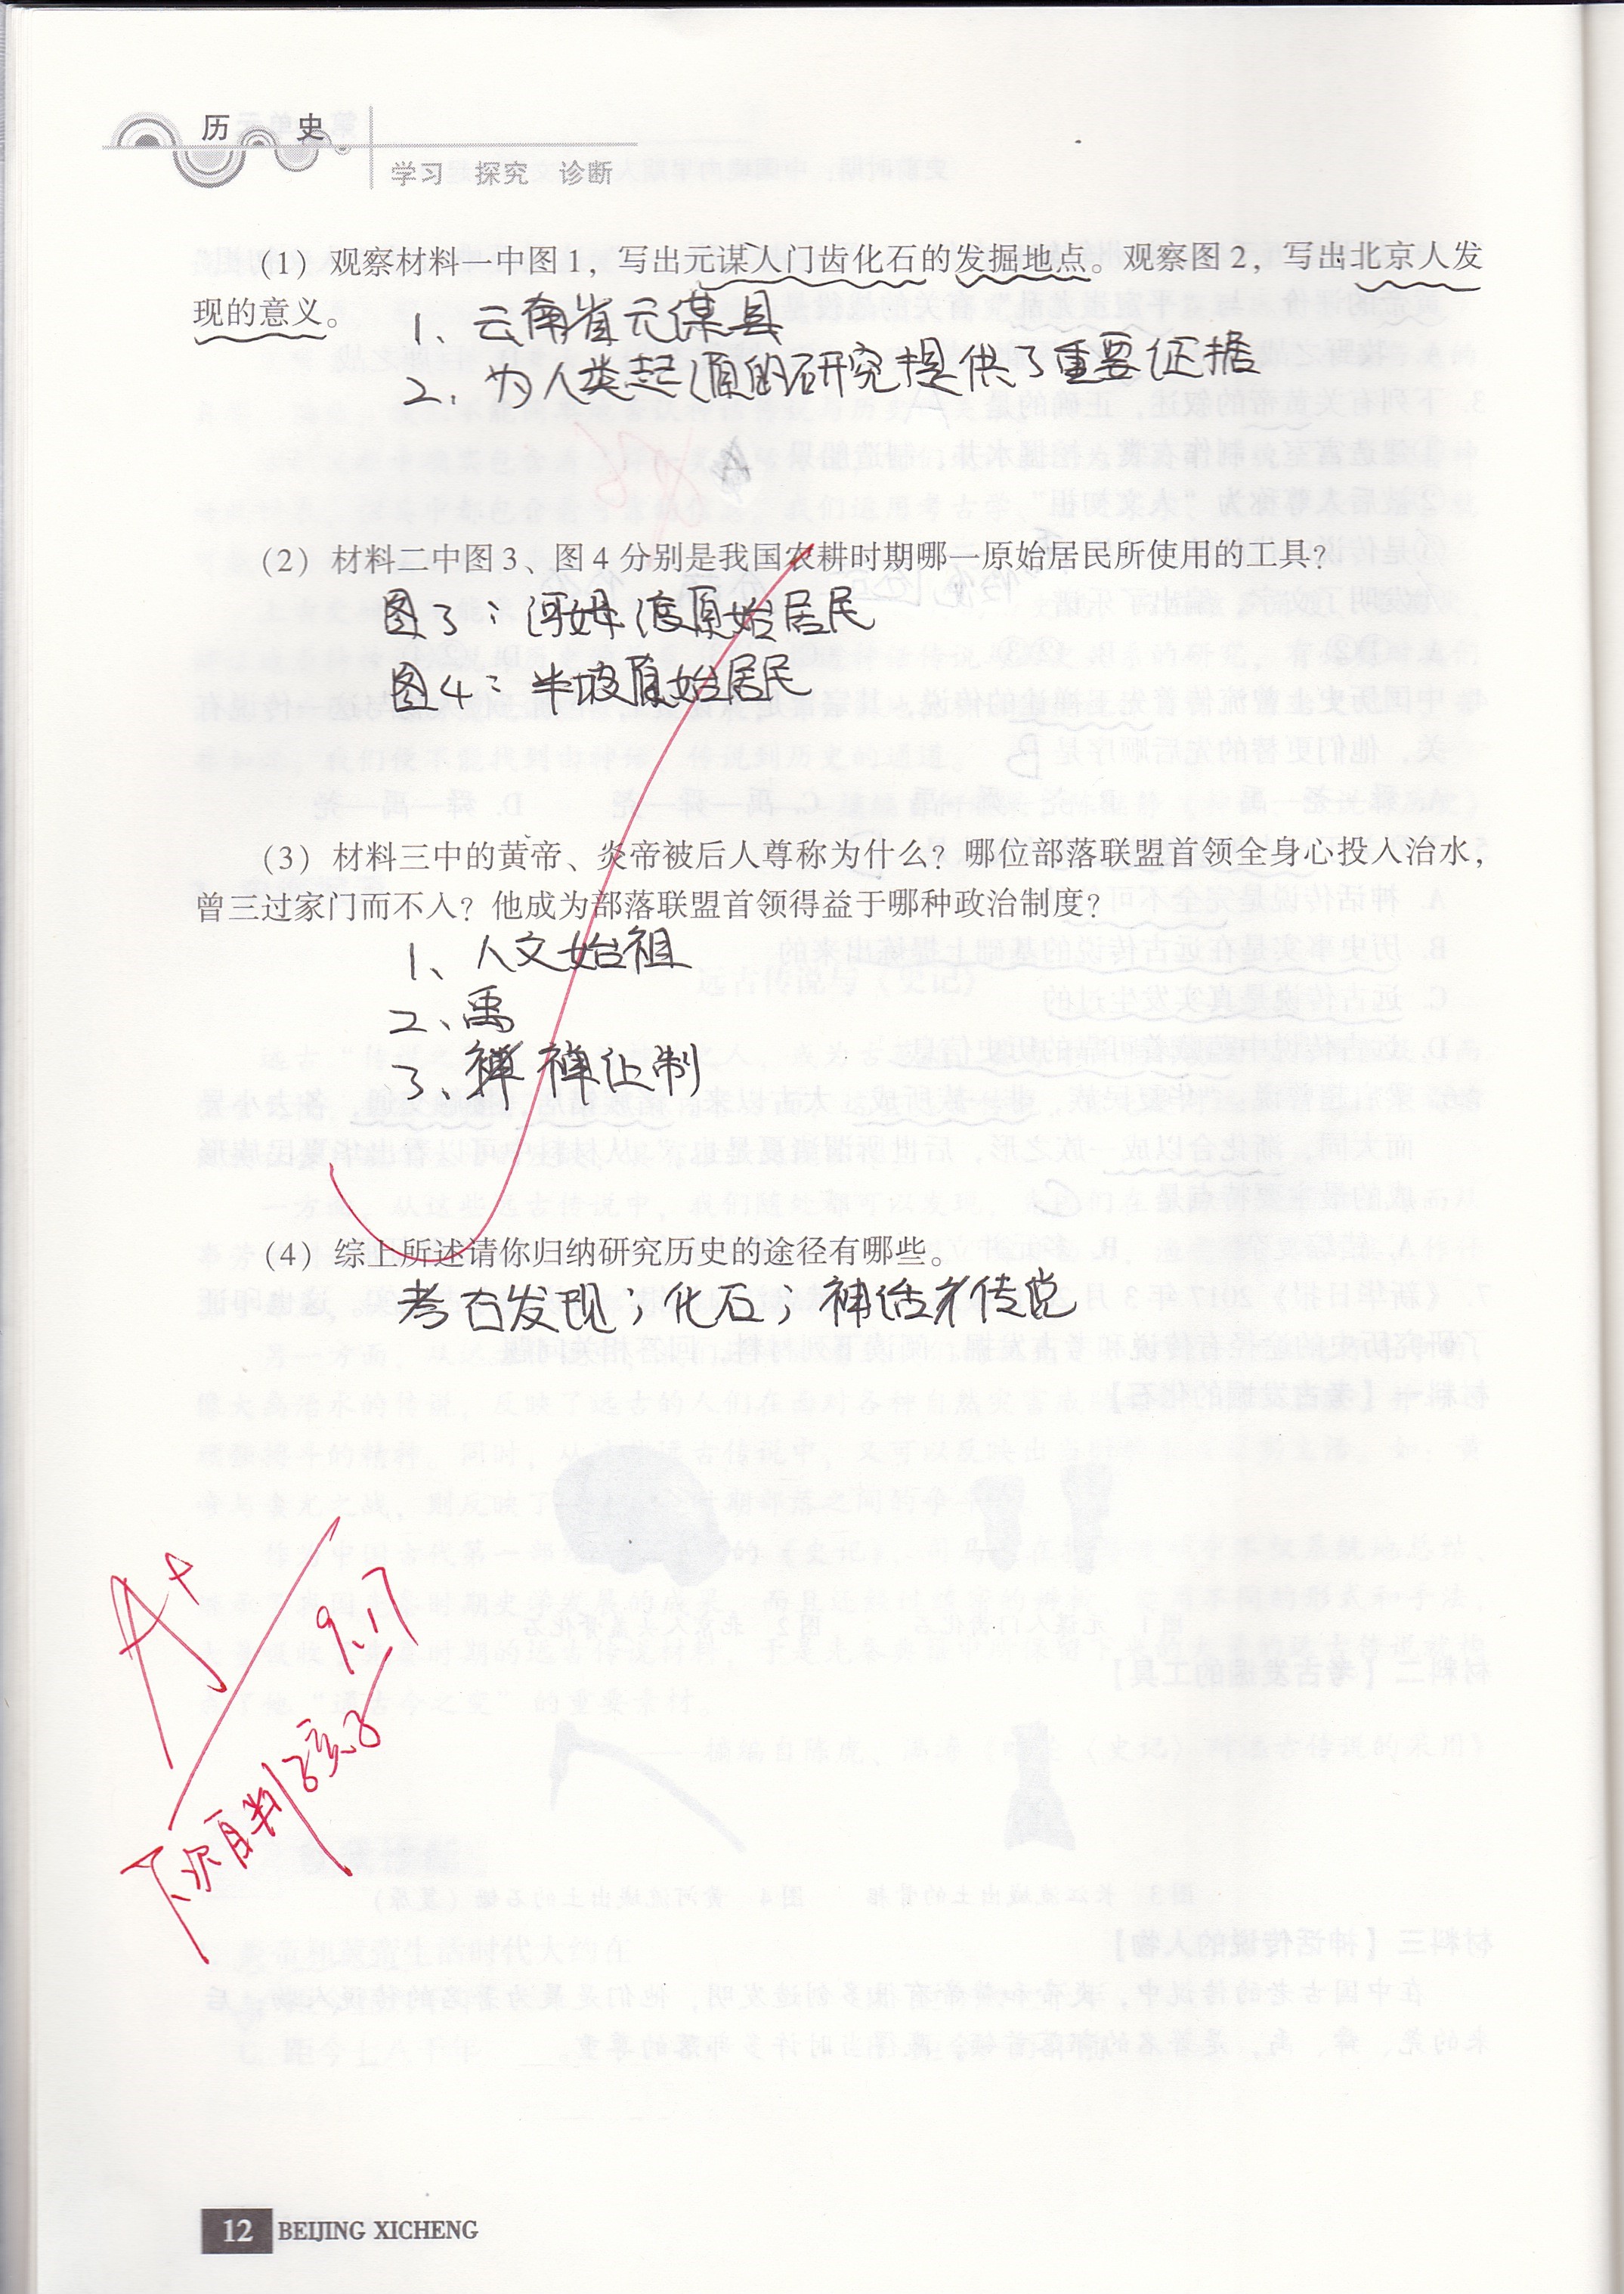 历 史
学习 探究 诊断
（1）观察材料一中图1，写出元谋人门齿化石的发掘地点。观察图2，写出北京人发
现的意义。
1、云南省元谋县
2、为人类起源的研究提供了重要证据
（2）材料二中图3、图4分别是我国农耕时期哪一原始居民所使用的工具？
图3：河姆渡原始居民
图4：半坡原始居民
（3）材料三中的黄帝、炎帝被后人尊称为什么？哪位部落联盟首领全身心投入治水，
曾三过家门而不入？他成为部落联盟首领得益于哪种政治制度？
1、人文始祖
2、禹
3、禅让制
（4）综上所述请你归纳研究历史的途径有哪些。
考古发现；化石；神话
传说
A+
9.17
12 BEIJING XICHENG